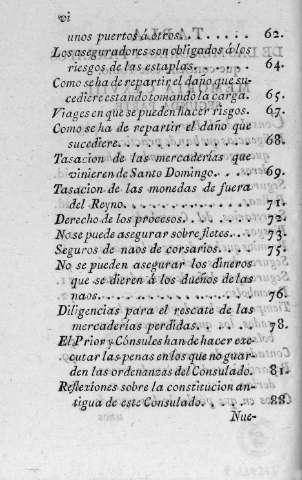 vi
unos puertos á otros. . . 62.
Los aseguradores son obligados á los
riesgos de las estaplas. . . . . 64.
Como se ha de repartir el daño que su-
cediere estando tomando la carga. 65.
Viages en que se pueden hacer riesgos. 67.
Como se ha de repartir el daño que
sucediere. . . . . . . . 68.
Tasacion de las mercaderías que
vinieren de Santo Domingo. . . 69.
Tasacion de las monedas de fuera
del Reyno. . . . . . . . 71.
Derecho de los procesos. . . . . 72.
No se puede asegurar sobre fletes. . . 73.
Seguros de naos de corsarios. . . . 75.
No se pueden asegurar los dineros
que se dieren á los dueños de las
naos. . . . . . . . . . 76.
Diligencias para el rescate de las
mercaderías perdidas. . . . . 78.
El Prior y Cónsules han de hacer exe-
cutar las penas en los que no guar-
den las ordenanzas del Consulado. 81.
Reflexîones sobre la constitucion an-
tigua de este Consulado. . . . . 88.
Nue-